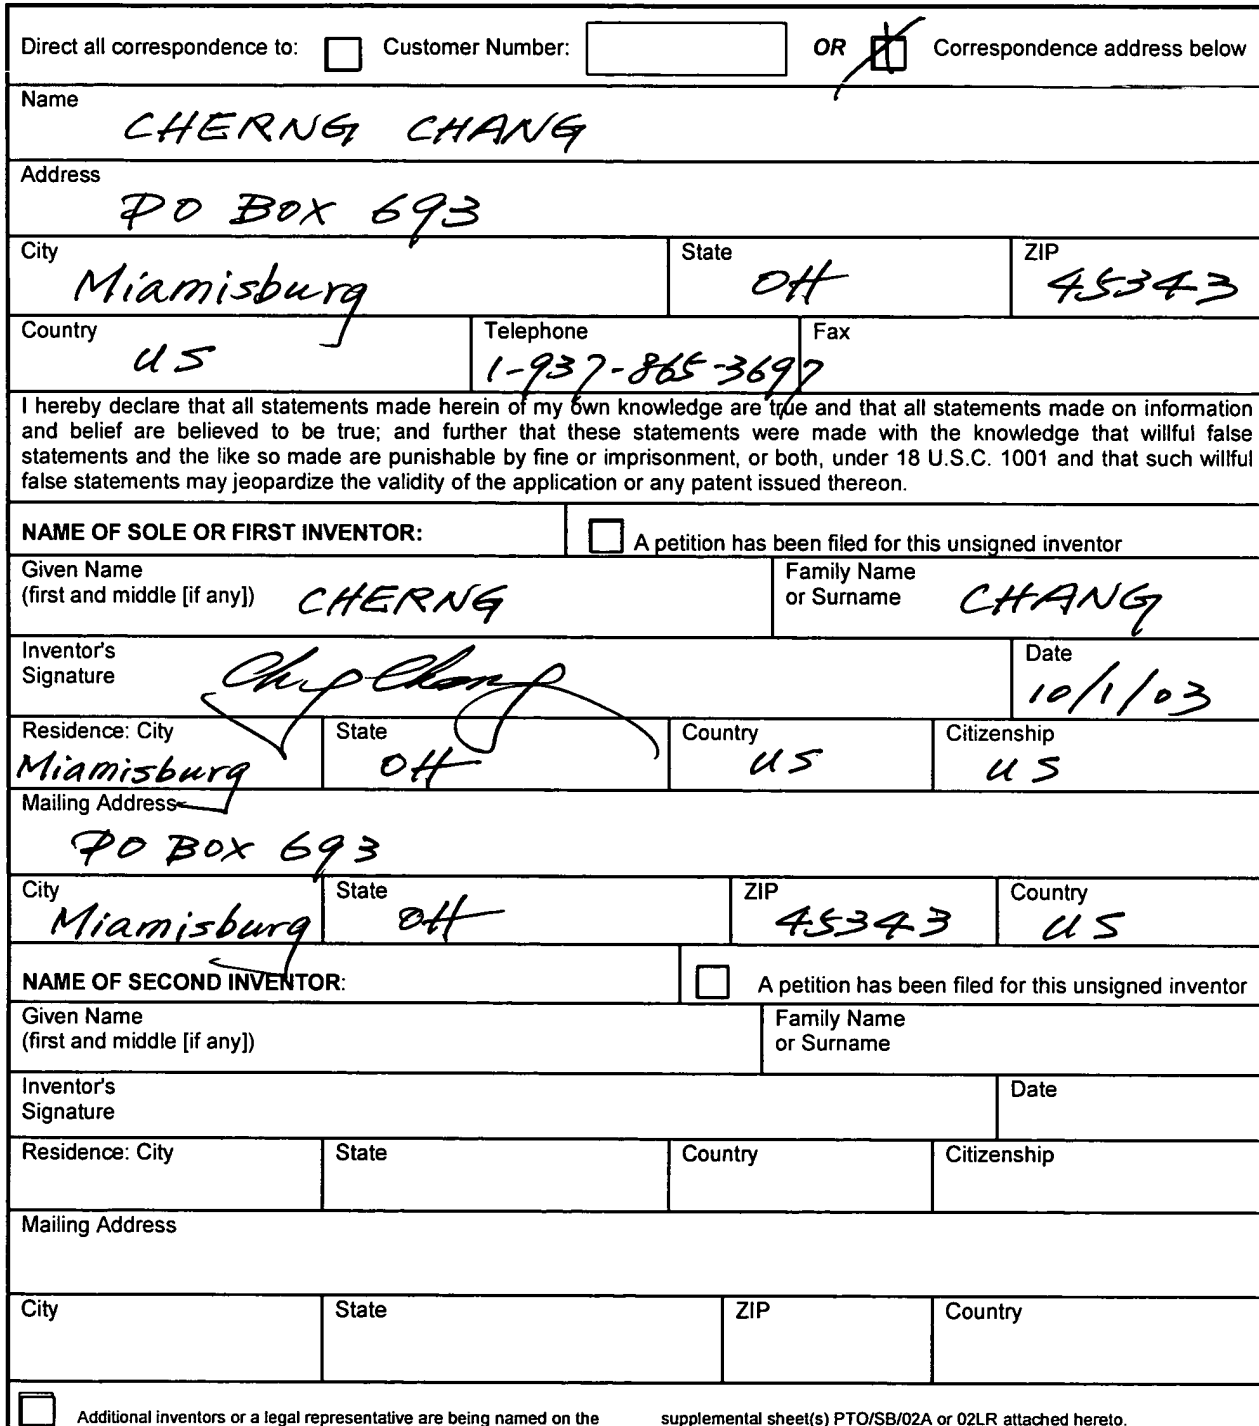 Direct all correspondence to: Customer Number: OR Correspondence address below
Name
CHERNG CHANG
Address
PO BOX 693
City State ZIP
Miamisburg OH 45343
Country Telephone Fax
US 1-937-865-3697
I hereby declare that all statements made herein of my own knowledge are true and that all statements made on information
and belief are believed to be true; and further that these statements were made with the knowledge that willful false
statements and the like so made are punishable by fine or imprisonment, or both, under 18 U.S.C. 1001 and that such willful
false statements may jeopardize the validity of the application or any patent issued thereon.
NAME OF SOLE OR FIRST INVENTOR: A petition has been filed for this unsigned inventor
Given Name Family Name
(first and middle [if any]) CHERNG or Surname CHANG
Inventor's Date
Signature 10/1/03
Residence: City State Country Citizenship
Miamisburg OH US US
Mailing Address
PO BOX 693
City State ZIP Country
Miamisburg OH 45343 US
NAME OF SECOND INVENTOR: A petition has been filed for this unsigned inventor
Given Name Family Name
(first and middle [if any]) or Surname
Inventor's Date
Signature
Residence: City State Country Citizenship
Mailing Address
City State ZIP Country
Additional inventors or a legal representative are being named on the supplemental sheet(s) PTO/SB/02A or 02LR attached hereto.